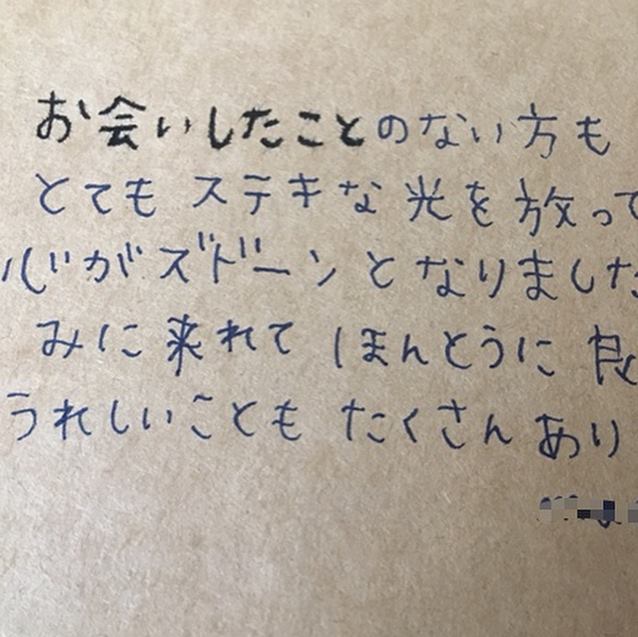 お会いしたことのない方も
とても ステキな 光を 放って
心がズドーンとなりました
みに 来れて ほんとうに 良
うれしいことも たくさん あり